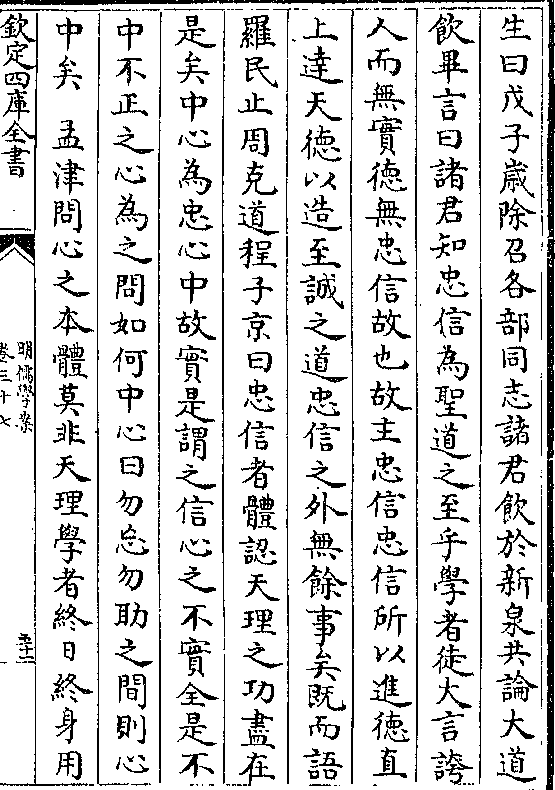 生曰戊子歲除召各部同志諸君飲於新泉共論大道
飲畢言曰諸君知忠信為聖道之至乎學者徒大言誇
人而無實德無忠信故也故主忠信忠信所以進德直
上達天德以造至誠之道忠信之外無餘事矣既而語
羅民止周克道程子京曰忠信者體認天理之功盡在
是矣中心為忠心中故實是謂之信心之不實全是不
中不正之心為之問如何中心曰勿忘勿助之間則心
中矣　孟津問心之本體莫非天理學者終日終身用
欽定四庫全書
明儒學案
卷三十七